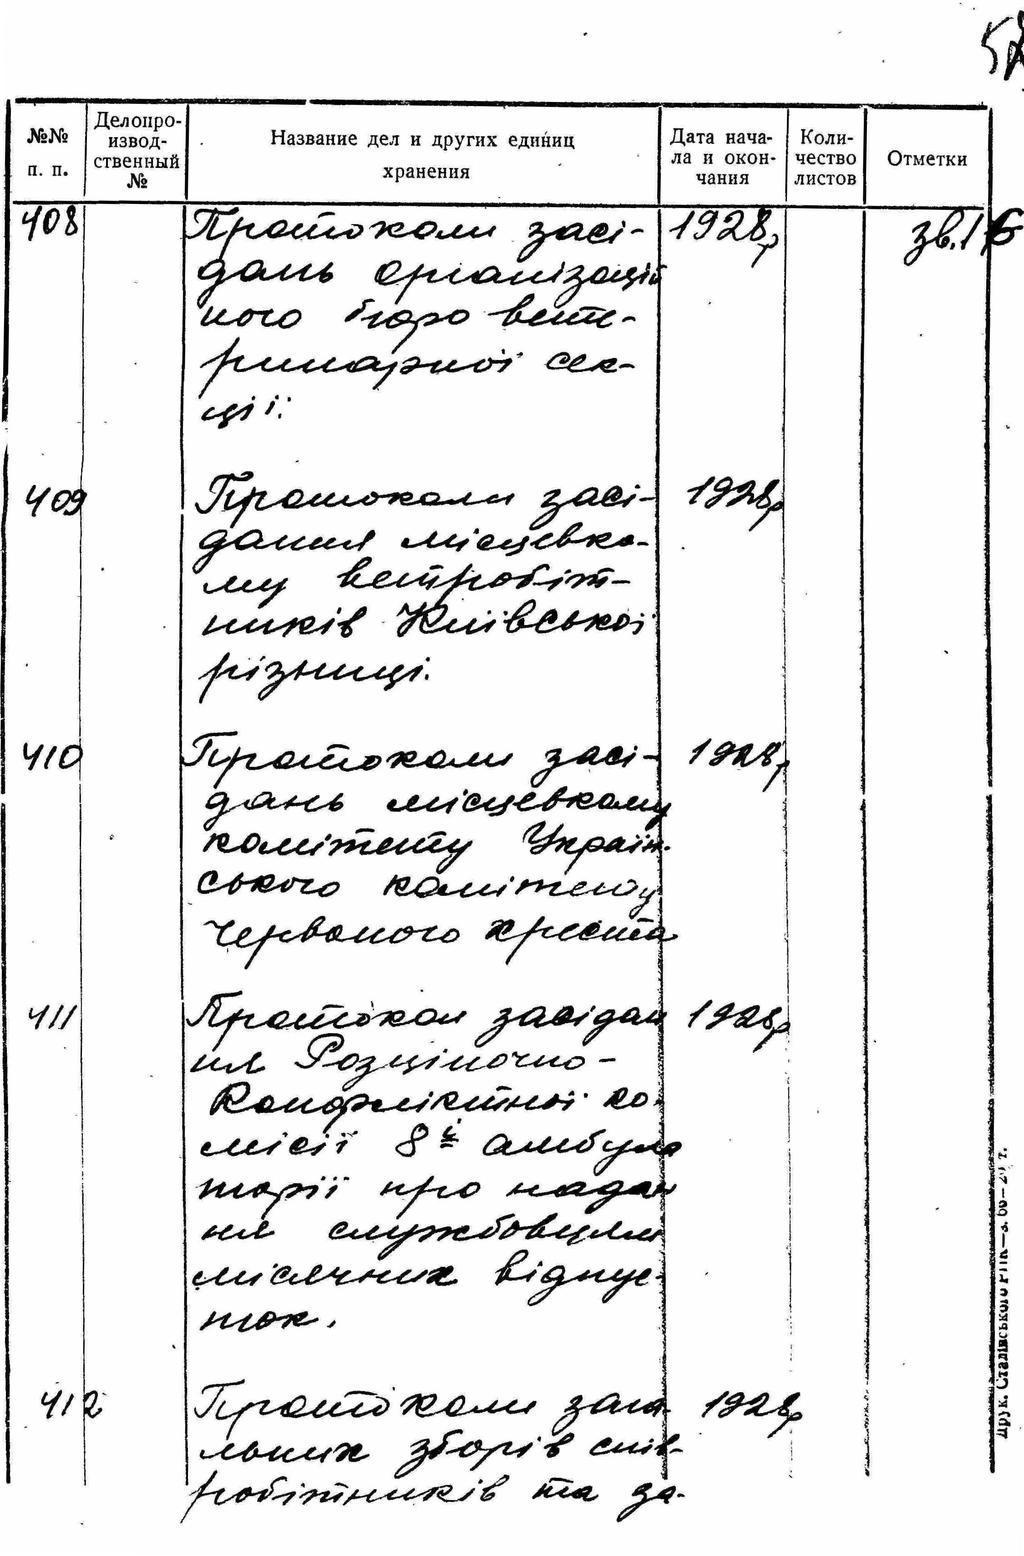 №№ п. п.
Делопро-
извод-
ственный
№
Название дел и других единиц
хранения
Дата нача-
ла и окон-
чания
Коли-
чество
листов
Отметки
408 Протоколи засі- 1928р
дань організацій
ного бюро вете-
ринарної сек-
ції.
409 Протоколи засі- 1928р
дання місцевко-
му ветробіт-
ників Київської
різниці.
410 Протоколи засі- 1928р
дань місцевкому
комітету Україн-
ського комітету
Червоного Хреста
411 Протокол засідан 1928р
ня Розціночно-
Конфліктної ко-
місії 8ї амбула
торії про надан
ня службовцям
місячних відпус-
ток.
412 Протоколи зага- 1928р
льних зборів спів-
робітників та за-